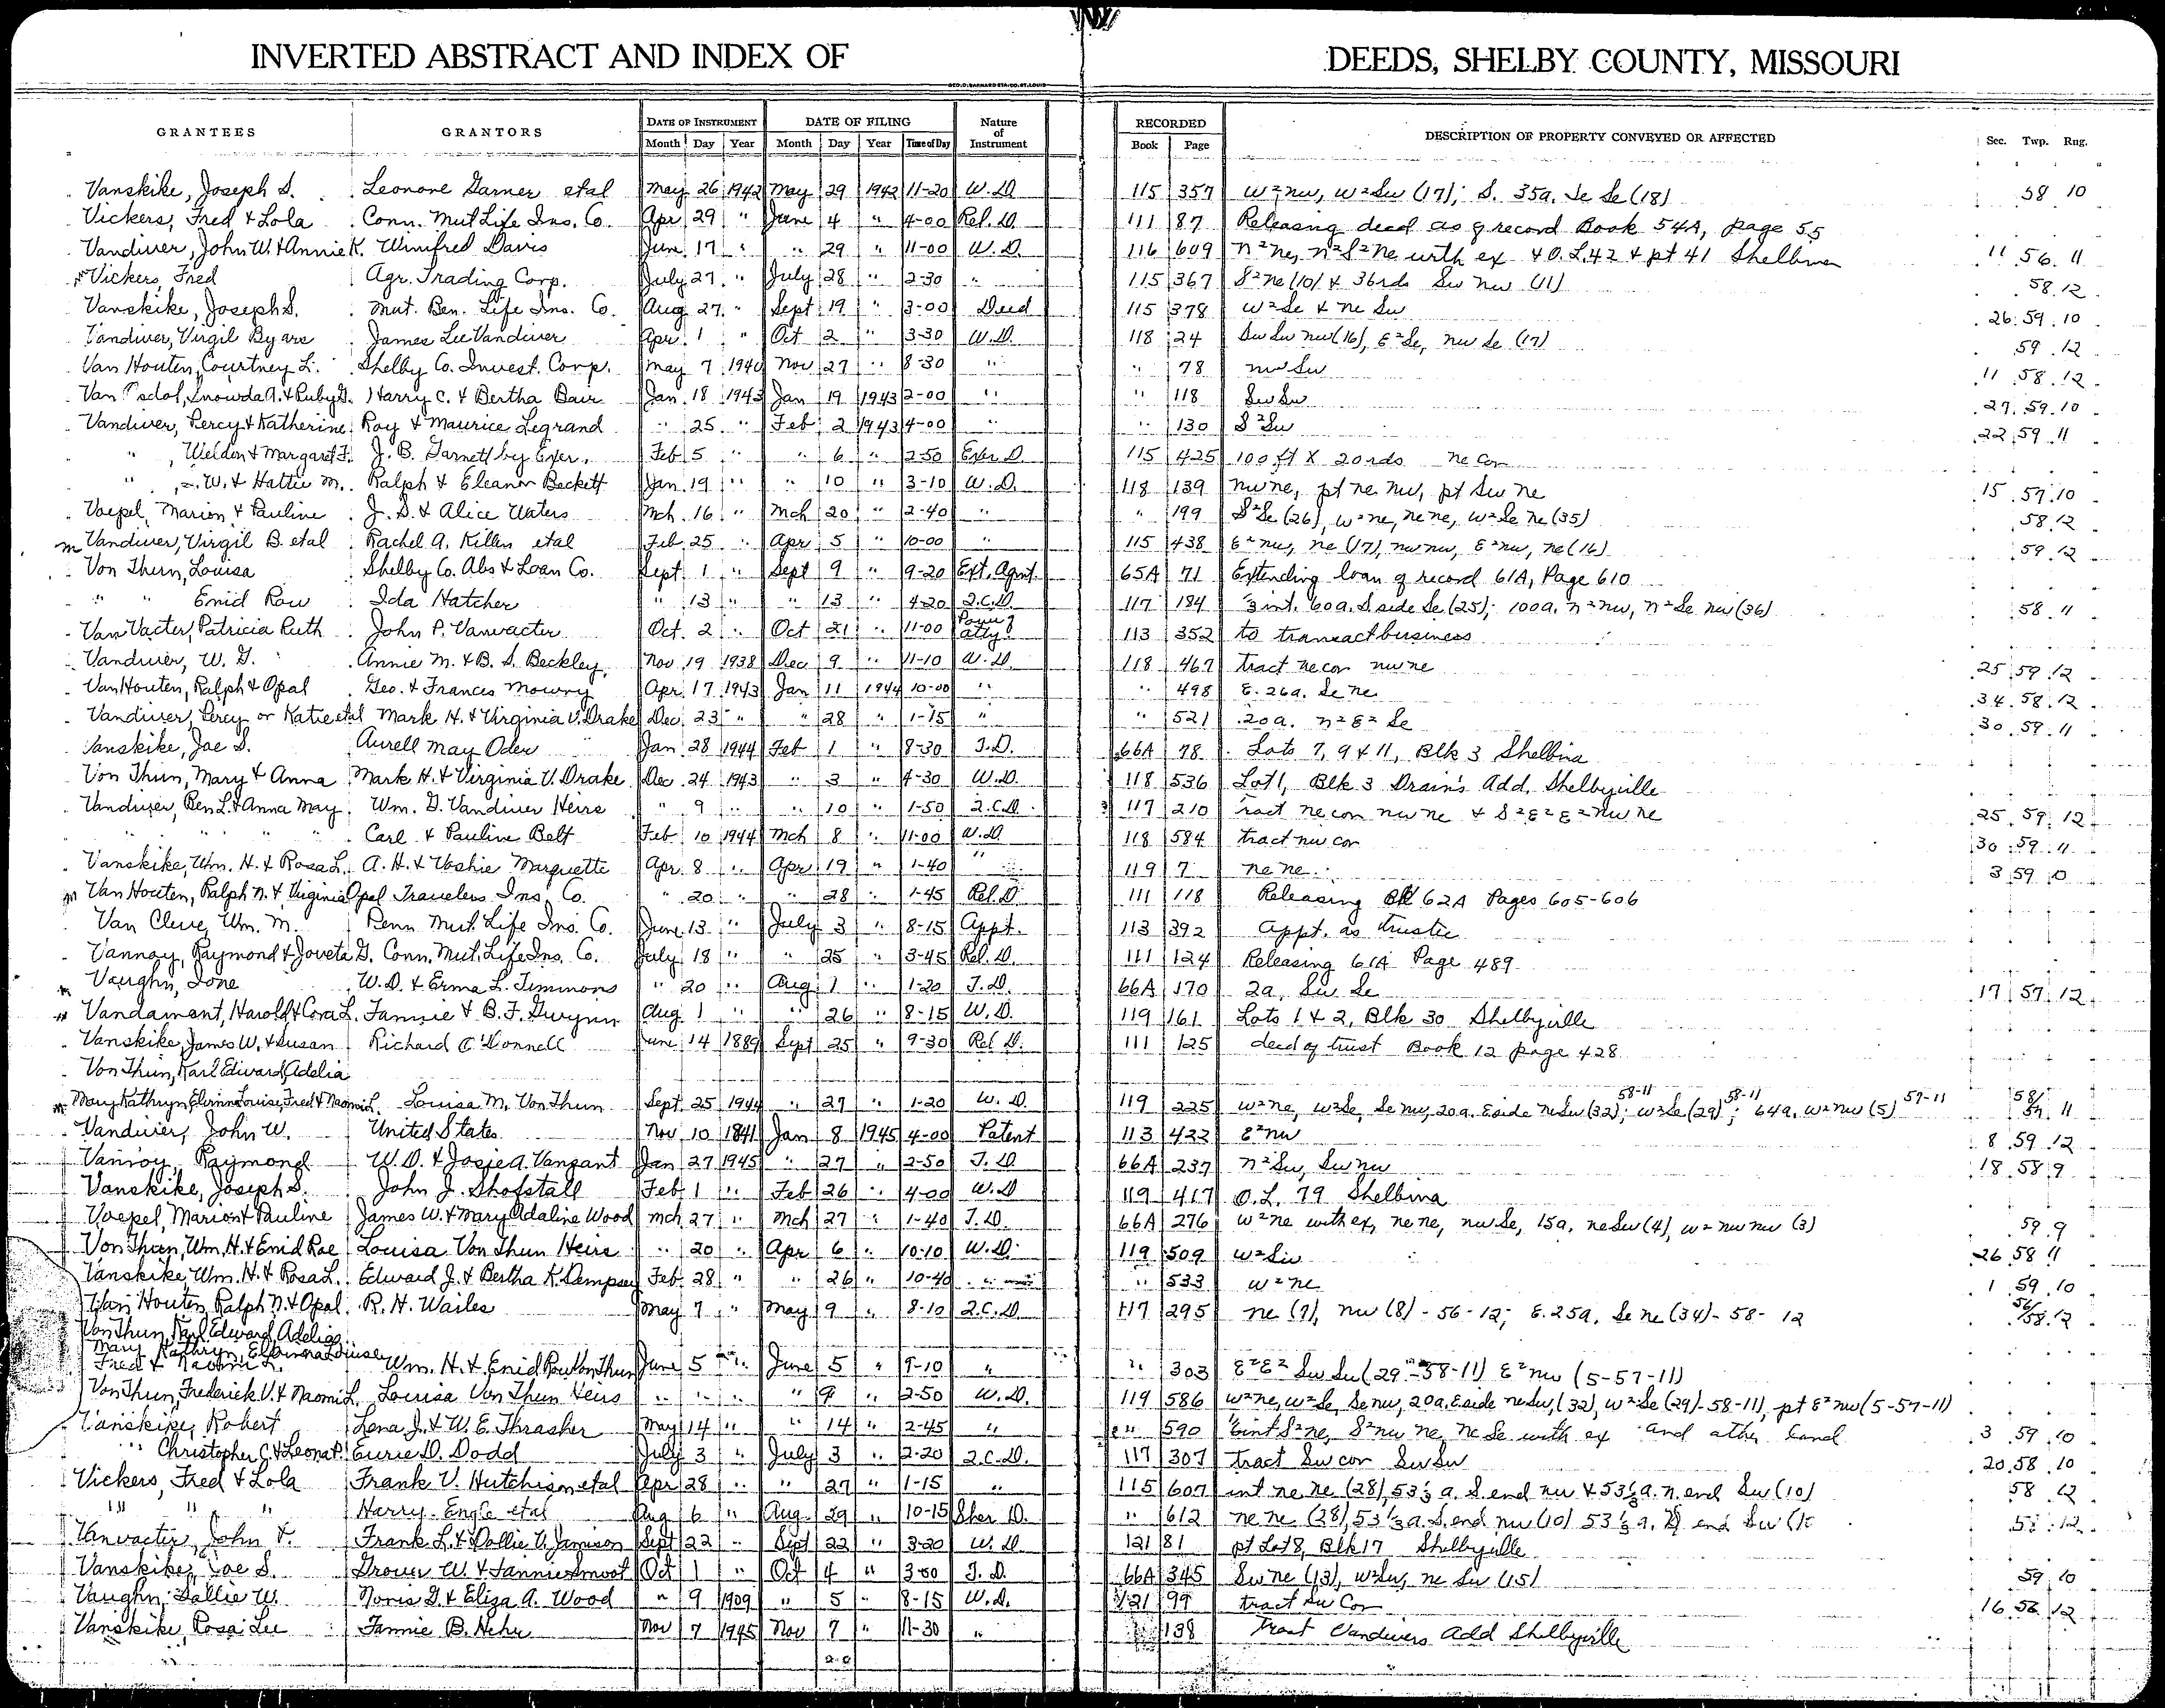 INVERTED ABSTRACT AND INDEX OF DEEDS, SHELBY COUNTY, MISSOURI
GEO. D. BARNARD STA. CO. ST. LOUIS
GRANTEES GRANTORS DATE OF INSTRUMENT DATE OF FILING Nature of Instrument RECORDED DESCRIPTION OF PROPERTY CONVEYED OR AFFECTED Sec. Twp. Rng.
Month Day Year Month Day Year Time of Day Book Page
Vanskike, Joseph S. Leonore Garner etal May 26 1942 May 29 1942 11-20 W. D. 115 357 W²nw, W²Sw (17); S. 35a. Se Se (18) 58 10
Vickers, Fred & Lola Conn. Mut Life Ins. Co. Apr 29 " June 4 " 4-00 Rel. D. 111 87 Releasing deed as of record Book 54A, page 55
Vandiver, John W. & Annie K. Winifred Davis June 17 " " 29 " 11-00 W. D. 116 609 n²ne, n²S²ne with ex & O.L. 42 & pt 41 Shelbina 11 56 11
Vickers, Fred Agr. Trading Corp. July 27 " July 28 " 2-30 " 115 367 S²ne (10) & 36rds Sw nw (11) 58 12
Vanskike, Joseph S. Mut. Ben. Life Ins. Co. Aug 27 " Sept 19 " 3-00 Deed 115 378 W²Se & ne Sw 26 59 10
Vandiver, Virgil Byars James Lee Vandiver Apr. 1 " Oct 2 " 3-30 W. D. 118 24 Sw Sw nw (16), E²Se, nw Se (17) 59 12
Van Houten, Courtney L. Shelby Co. Invest. Corp. May 7 1940 Nov 27 " 8-30 " " 78 nw Sw 11 58 12
Van Snowda A. & Ruby G. Harry C. & Bertha Bair Jan. 18 1943 Jan 19 1943 2-00 " " 118 Sw Sw 27 59 10
Vandiver, Percy & Katherine Roy & Maurice Legrand " 25 " Feb 2 1943 4-00 " " 130 S²Sw 22 59 11
" , Weldon & Margaret F. J. B. Garnett by Exer. Feb 5 " " 6 " 2-50 Exer D. 115 425 100 ft X 20rds ne Cor
" , W. & Hattie M. Ralph & Eleanor Beckett Jan. 19 " " 10 " 3-10 W. D. 118 139 nw ne, pt ne nw, pt Sw ne 15 57 10
Voepel, Marion & Pauline J. D. & Alice Waters Mch. 16 " Mch 20 " 2-40 " " 199 S²Se (26), W²ne, ne ne, W²Se ne (35) 58 12
Vandiver, Virgil B. etal Rachel A. Killen etal Feb. 25 " Apr 5 " 10-00 " 115 438 E²nw, ne (17), nw nw, E²nw, ne (16) 59 12
Von Thun, Louisa Shelby Co. Abs & Loan Co. Sept. 1 " Sept 9 " 9-20 Ext. Agmt. 65A 71 Extending loan of record 61A, Page 610
" " Enid Row Ida Hatcher " 13 " " 13 " 4-20 Q.C.D. 117 184 int. 60a. S side Se (25); 100a. n²nw, n²Se nw (36) 58 11
Van Vacter, Patricia Ruth John P. Vanvacter Oct. 2 " Oct 21 " 11-00 Power of Atty 113 352 to transact business
Vandiver, W. G. Annie M. & B. S. Beckley Nov 19 1938 Dec 9 " 11-10 W. D. 118 467 tract ne cor nw ne 25 59 12
Van Houten, Ralph & Opal Geo. & Frances Mowry Apr. 17 1943 Jan 11 1944 10-00 " " 498 E. 26a. Se ne 34 58 12
Vandiver, Percy or Katie etal Mark H. & Virginia V. Drake Dec. 23 " " 28 " 1-15 " " 521 20a. n²E²Se 30 59 11
Vanskike, Joe S. Aurell May Oder Jan. 28 1944 Feb 1 " 8-30 T. D. 66A 78 Lots 7, 9 & 11, Blk 3 Shelbina
Von Thun, Mary & Anna Mark H. & Virginia V. Drake Dec. 24 1943 " 3 " 4-30 W. D. 118 536 Lot 1, Blk 3 Drain's Add. Shelbyville
Vandiver, Ben L. & Anna May Wm. G. Vandiver Heirs " 9 " " 10 " 1-50 Q.C.D. 117 210 Tract ne cor nw ne & S²E²E²nw ne 25 59 12
" " " " Carl & Pauline Belt Feb 10 1944 Mch 8 " 11-00 W. D. 118 584 tract nw cor 30 59 11
Vanskike, Wm. H. & Rosa L. A. H. & Voshie Marquette Apr. 8 " Apr 19 " 1-40 " 119 7 ne ne 3 59 10
Van Houten, Ralph N. & Virginia Opal Travelers Ins. Co. " 20 " " 28 " 1-45 Rel. D. 111 118 Releasing Bk 62A Pages 605-606
Van Cleve, Wm. M. Penn Mut. Life Ins. Co. June 13 " July 3 " 8-15 Appt. 113 392 Appt. as trustee
Vannoy, Raymond & Joveta G. Conn. Mut. Life Ins. Co. July 18 " " 25 " 3-45 Rel. D. 111 124 Releasing 61A Page 489
Vaughn, Ione W. D. & Erma L. Timmons " 20 " Aug 1 " 1-20 T. D. 66A 170 2a. Sw Se 17 57 12
Vandament, Harold & Cora L. Fannie & B. F. Gwynn Aug 1 " " 26 " 8-15 W. D. 119 161 Lots 1 & 2, Blk 30 Shelbyville
Vanskike, James W. & Susan Richard O'Donnell June 14 1889 Sept 25 " 9-30 Rel D. 111 125 deed of trust Book 12 page 428
Von Thun, Karl Edward, Adelia
Mary Kathryn, Elvinna Louise, Fred & Naomi L. Louisa M. Von Thun Sept 25 1944 " 27 " 1-20 W. D. 119 225 W²ne, W²Se, Se nw, 20a. E side ne Sw (32); 58-11 W²Se (29); 58-11 64a. W²nw (5) 57-11 58/57 11
Vandiver, John W. United States Nov 10 1841 Jan 8 1945 4-00 Patent 113 422 E²nw 8 59 12
Vanroy, Raymond W. D. & Josie A. Vanzant Jan 27 1945 " 27 " 2-50 T. D. 66A 237 n²Sw, Sw nw 18 58 9
Vanskike, Joseph S. John J. Shofstall Feb 1 " Feb 26 " 4-00 W. D 119 417 O.L. 79 Shelbina
Voepel, Marion & Pauline James W. & Mary Adaline Wood Mch 27 " Mch 27 " 1-40 T. D. 66A 276 W²ne with ex, ne ne, nw Se, 15a. ne Sw (4), W²nw nw (3) 59 9
Von Thun, Wm. H. & Enid Rae Louisa Von Thun Heirs " 20 " Apr 6 " 10-10 W. D. 119 509 W²Sw 26 58 11
Vanskike, Wm. H. & Rosa L. Edward J. & Bertha K. Dempsey Feb. 28 " " 26 " 10-40 " " 533 W²ne 1 59 10
Van Houten, Ralph N. & Opal R. H. Wailes May 7 " May 9 " 8-10 Q.C.D. 117 295 ne (7), nw (8)-56-12; E. 25a. Se ne (34)-58-12 56/58 12
Von Thun, Karl Edward, Adelia
Mary Kathryn, Elvinna Louise
Fred & Naomi L. Wm. H. & Enid Rou Von Thun June 5 " June 5 " 9-10 " " 303 E²E²Sw Sw (29-58-11) E²nw (5-57-11)
Von Thun, Frederick V. & Naomi L. Louisa Von Thun Heirs " " " " 9 " 2-50 W. D. 119 586 W²ne, W²Se, Se nw, 20a. E side ne Sw, (32), W²Se (29)-58-11), pt E²nw (5-57-11)
Vanskike, Robert Lena J. & W. E. Thrasher May 14 " " 14 " 2-45 " " 590 int S²ne, S²nw ne, ne Se with ex and other land 3 59 10
" Christopher C. & Leona P. Eurie D. Dodd July 3 " July 3 " 2-20 Q.C.D. 117 307 tract Sw cor Sw Sw 20 58 10
Vickers, Fred & Lola Frank V. Hutchison etal Apr 28 " " 27 " 1-15 " 115 607 int ne ne (28), 53⅓ a. S. end nw & 53⅓ a. n. end Sw (10) 58 12
" " " Harry Engle etal Aug 6 " Aug 29 " 10-15 Sher D. " 612 ne ne (28), 53⅓ a. S. end nw (10) 53⅓ a. n end Sw (10 58 12
Vanvacter, John F. Frank L. & Dollie V. Jamison Sept 22 " Sept 22 " 3-20 W. D. 121 81 pt Lot 8, Blk 17 Shelbyville
Vanskike, Joe S. Grover W. & Fannie Smoot Oct 1 " Oct 4 " 3-00 T. D. 66A 345 Sw ne (13), W²Sw, ne Sw (15) 59 10
Vaughn, Sallie W. Noris G. & Eliza A. Wood " 9 1909 " 5 " 8-15 W. D. 121 99 tract Sw Cor 16 56 12
Vanskike, Rosa Lee Fannie B. Hehr Nov 7 1945 Nov 7 " 11-30 " 138 Tract Vandivers Add Shelbyville